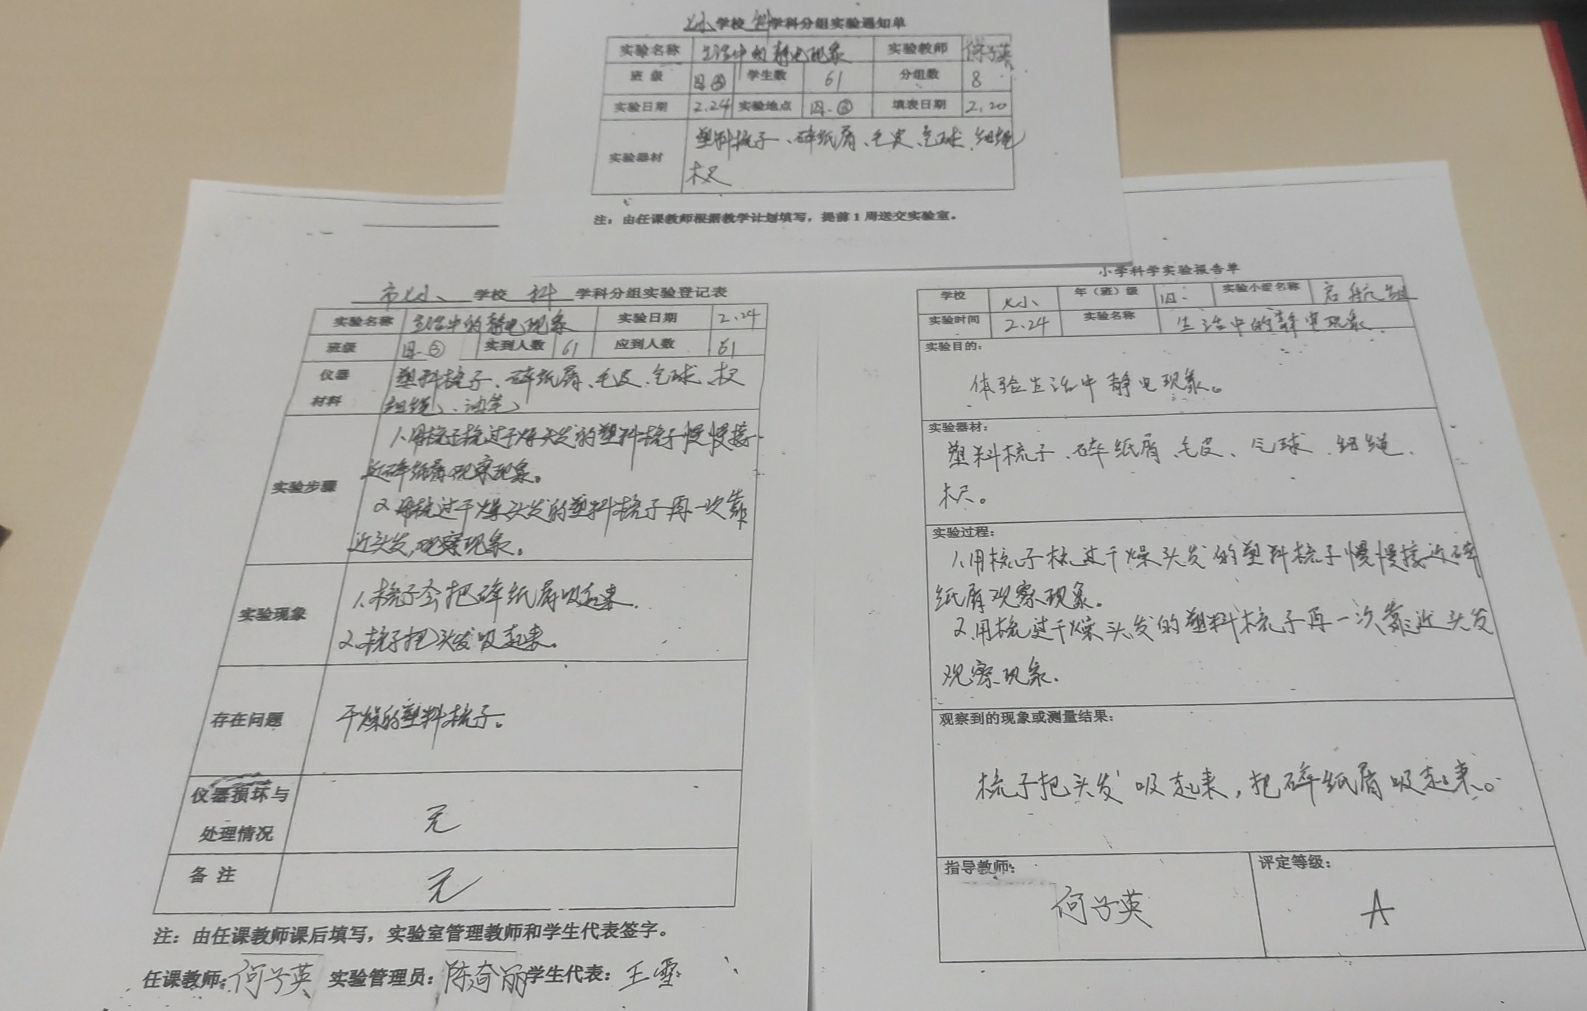 学校 科学科分组实验通知单
实验名称 生活中的静电现象 实验教师 何子英
班级 四 学生数 61 分组数 8
实验日期 2.24 实验地点 四. 填表日期 2.20
实验器材 塑料梳子、碎纸屑、毛皮、气球、细绳
木尺
注：由任课教师根据教学计划填写，提前1周送交实验室。
学校 科 学科分组实验登记表
实验名称 生活中的静电现象 实验日期 2.24
班级 四. 实到人数 61 应到人数 61
仪器材料 塑料梳子、碎纸屑、毛皮、气球、
细绳、
实验步骤 1.用梳子梳过干燥头发的塑料梳子慢慢接
近碎纸屑观察现象。
2.用梳过干燥头发的塑料梳子再一次靠
近头发，观察现象。
实验现象 1.梳子会把碎纸屑吸起来.
2.梳子把头发吸起来。
存在问题 干燥的塑料梳子。
仪器损坏与处理情况 无
备注 无
注：由任课教师课后填写，实验室管理教师和学生代表签字。
任课教师：何子英 实验管理员：陈奇丽 学生代表：王雪
小学科学实验报告单
学校 年（班）级 四. 实验小组名称 启航组
实验时间 2.24 实验名称 生活中的静电现象.
实验目的：
体验生活中静电现象。
实验器材：
塑料梳子、碎纸屑、毛皮、气球、细绳、
木尺。
实验过程：
1.用梳子梳过干燥头发的塑料梳子慢慢接近碎
纸屑观察现象。
2.用梳过干燥头发的塑料梳子再一次靠近头发
观察现象.
观察到的现象或测量结果：
梳子把头发吸起来，把碎纸屑吸起来。
指导教师： 何子英 评定等级： A